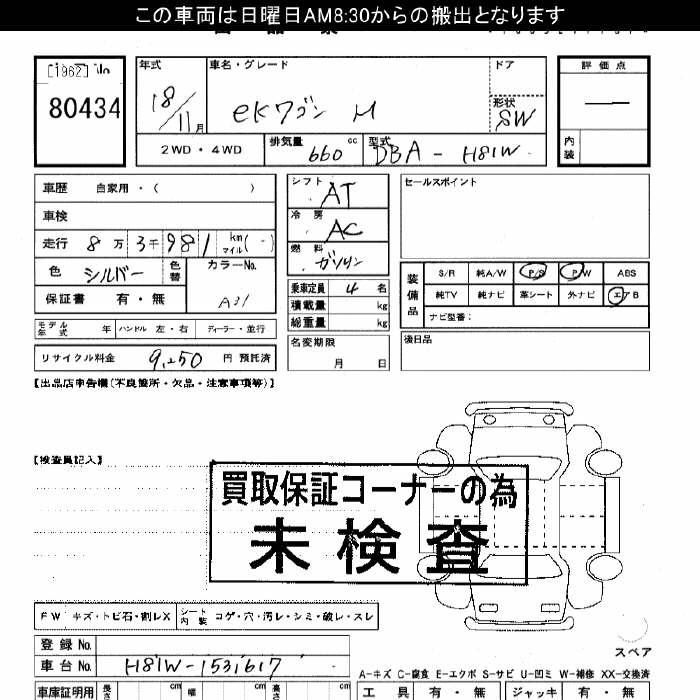 この車両は日曜日AM8:30からの搬出となります
[1962] No
80434
年式 車名・グレード ドア 評価点
18/11月 eKワゴン M 形状 SW
2WD・4WD 排気量 660 cc 型式 DBA-H81W 内装
車歴 自家用・( ) シフト AT セールスポイント
車検 冷房 AC
走行 8万3千981 km マイル(-) 燃料 ガソリン
色 シルバー 色替 カラーNo. A31
装備品 S/R 純A/W P/S P/W ABS
純TV 純ナビ 革シート 外ナビ エアB
ナビ型番:
保証書 有・無 乗車定員 4 名
積載量 kg
総重量 kg
モデル年式 年 ハンドル 左・右 ディーラー・並行
名変期限 月 日 後日品
リサイクル料金 9,250 円 預託済
【出品店申告欄(不良箇所・欠品・注意事項等)】
【検査員記入】
買取保証コーナーの為
未検査
FW キズ・トビ石・割レX シート内装 コゲ・穴・汚レ・シミ・破レ・スレ
登録No.
車台No. H81W-1531617
スペア
A-キズ C-腐食 E-エクボ S-サビ U-凹ミ W-補修 XX-交換済
車庫証明用 長さ cm 幅 cm 高さ cm 工具 有・無 ジャッキ 有・無